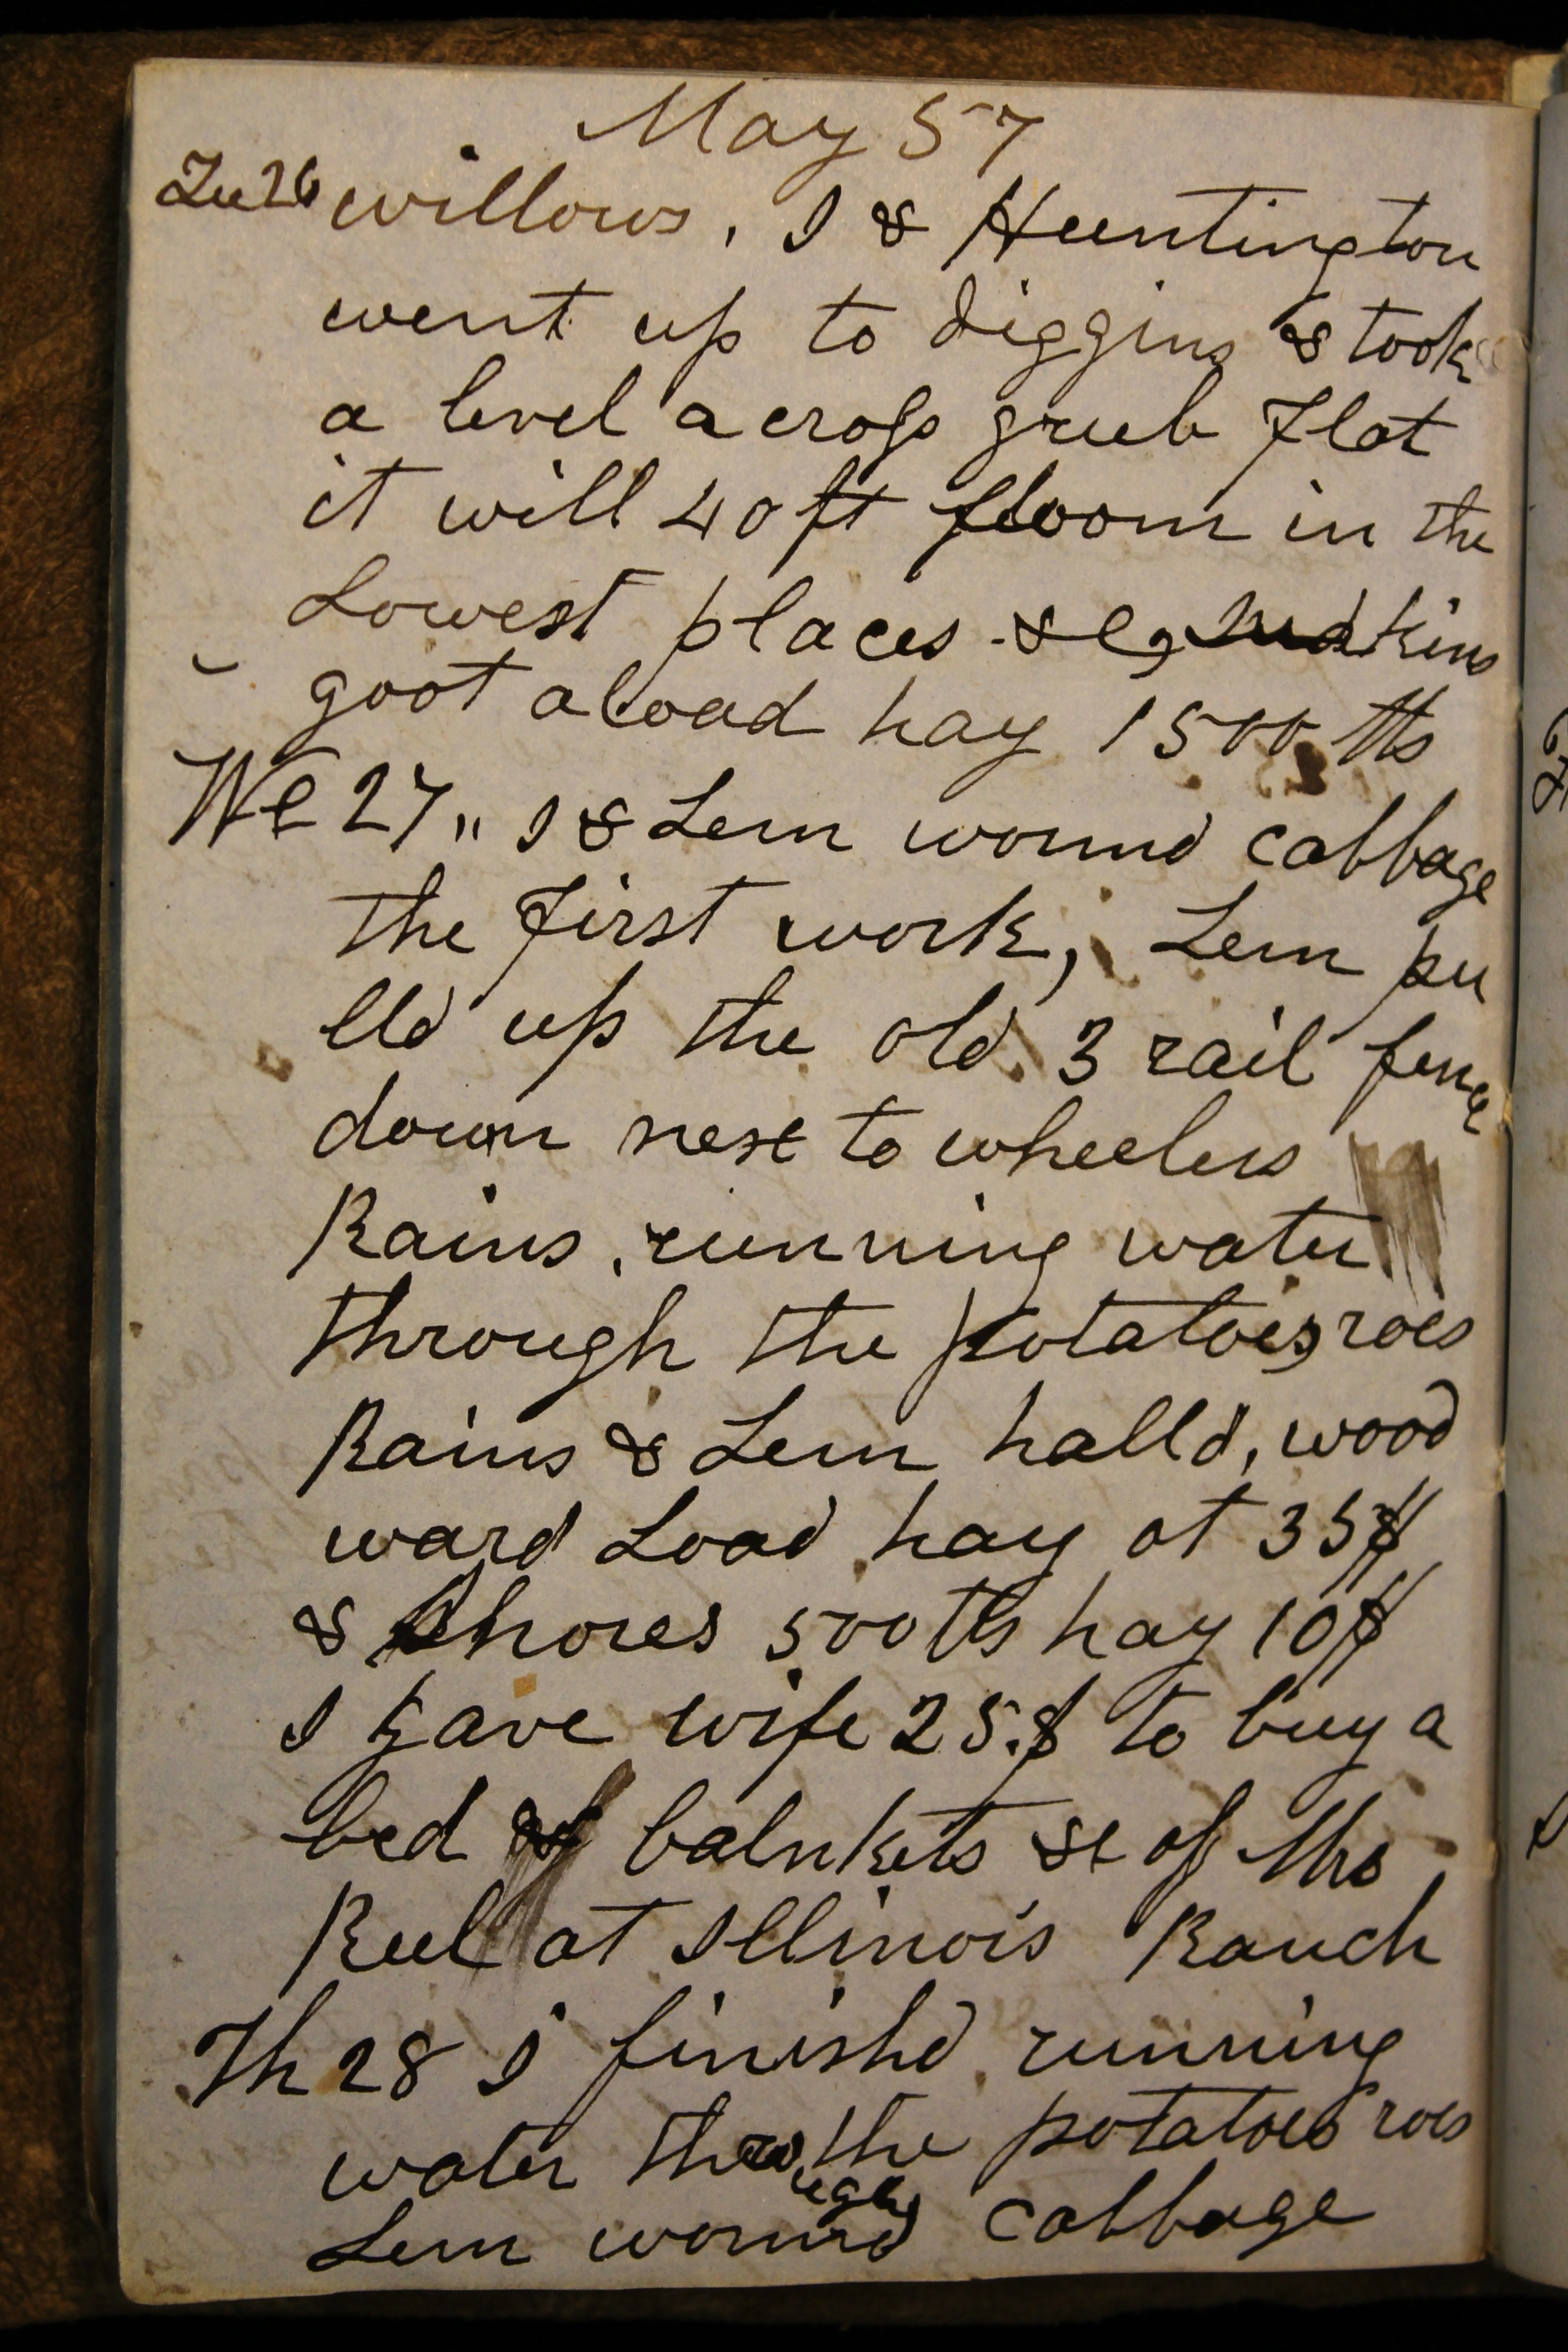 May 57
Tu 26 willows, I & Huntington
went up to diggins & took
a level across grub Flat
it will 40 ft floom in the
Lowest places &c,
goot a load hay 1500 lbs
We 27 " I & Lem wormd cabbage
the first work, Lem pu
lld up the old 3 rail fence
down next to wheelers
Rains, running water
through the potatoes, roes
Rains & Lem halld, wood
ward Load hay at 35$
& Shores 500 lbs hay 10$
I gave wife 25.$ to buy a
bed balnkets &c of Mrs
Reel at Illinois Ranch
Th 28 I finishd running
water through the potatoes roes
Lem wormd cabbage